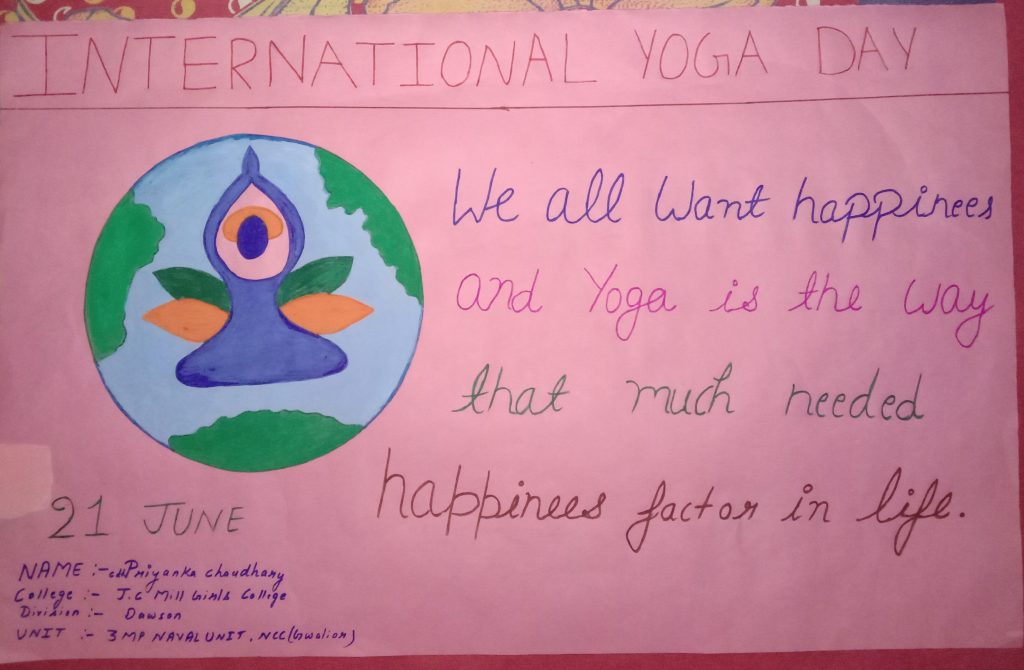 INTERNATIONAL YOGA DAY
We all Want happinees
and Yoga is the way
that much needed
happinees factor in life.
21 JUNE
NAME :- cdt Priyanka Choudhary
College :- J.C Mill Girls College
Division :- Dawson
UNIT :- 3 MP NAVAL UNIT, NCC (Gwalior)